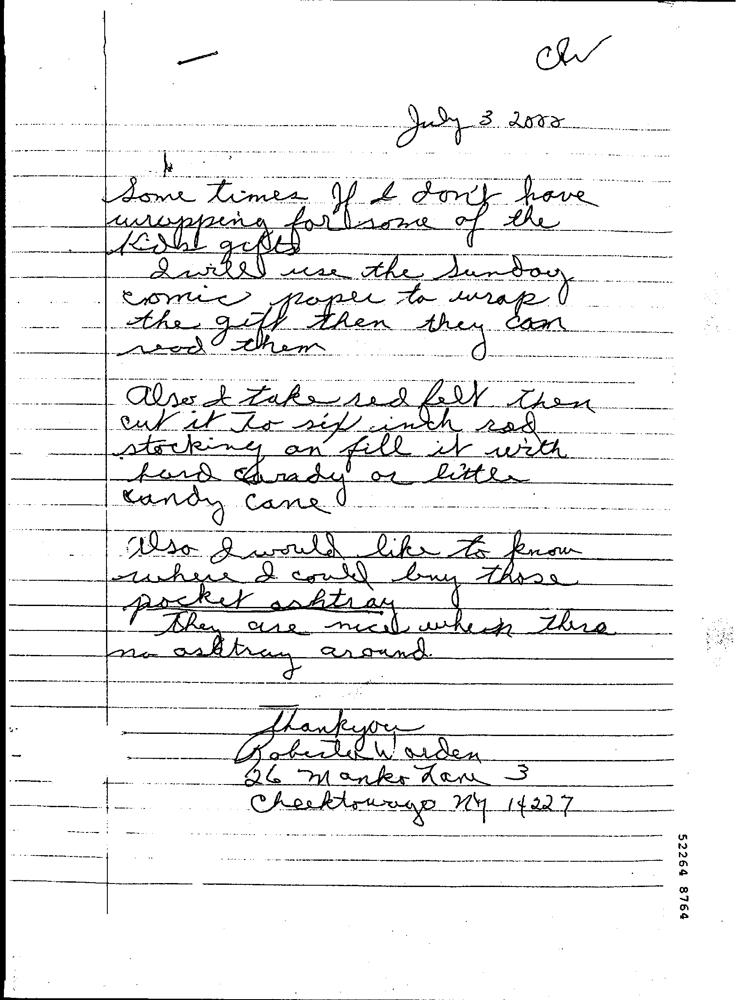 July 3 2000
Some times If I don't have
wrapping for some of the
Kids gifts
I will use the Sunday
comic paper to wrap
the gift then they can
read them
Also I take red felt then
cut it to six inch red
stocking an fill it with
hard candy or little
candy cane
Also I would like to know
where I could buy those
pocket ashtray
They are nice when there
no ashtray around.
Thankyou
Roberta Warden
26 Manko Lane 3
Cheektowago NY 14227
52264 8764